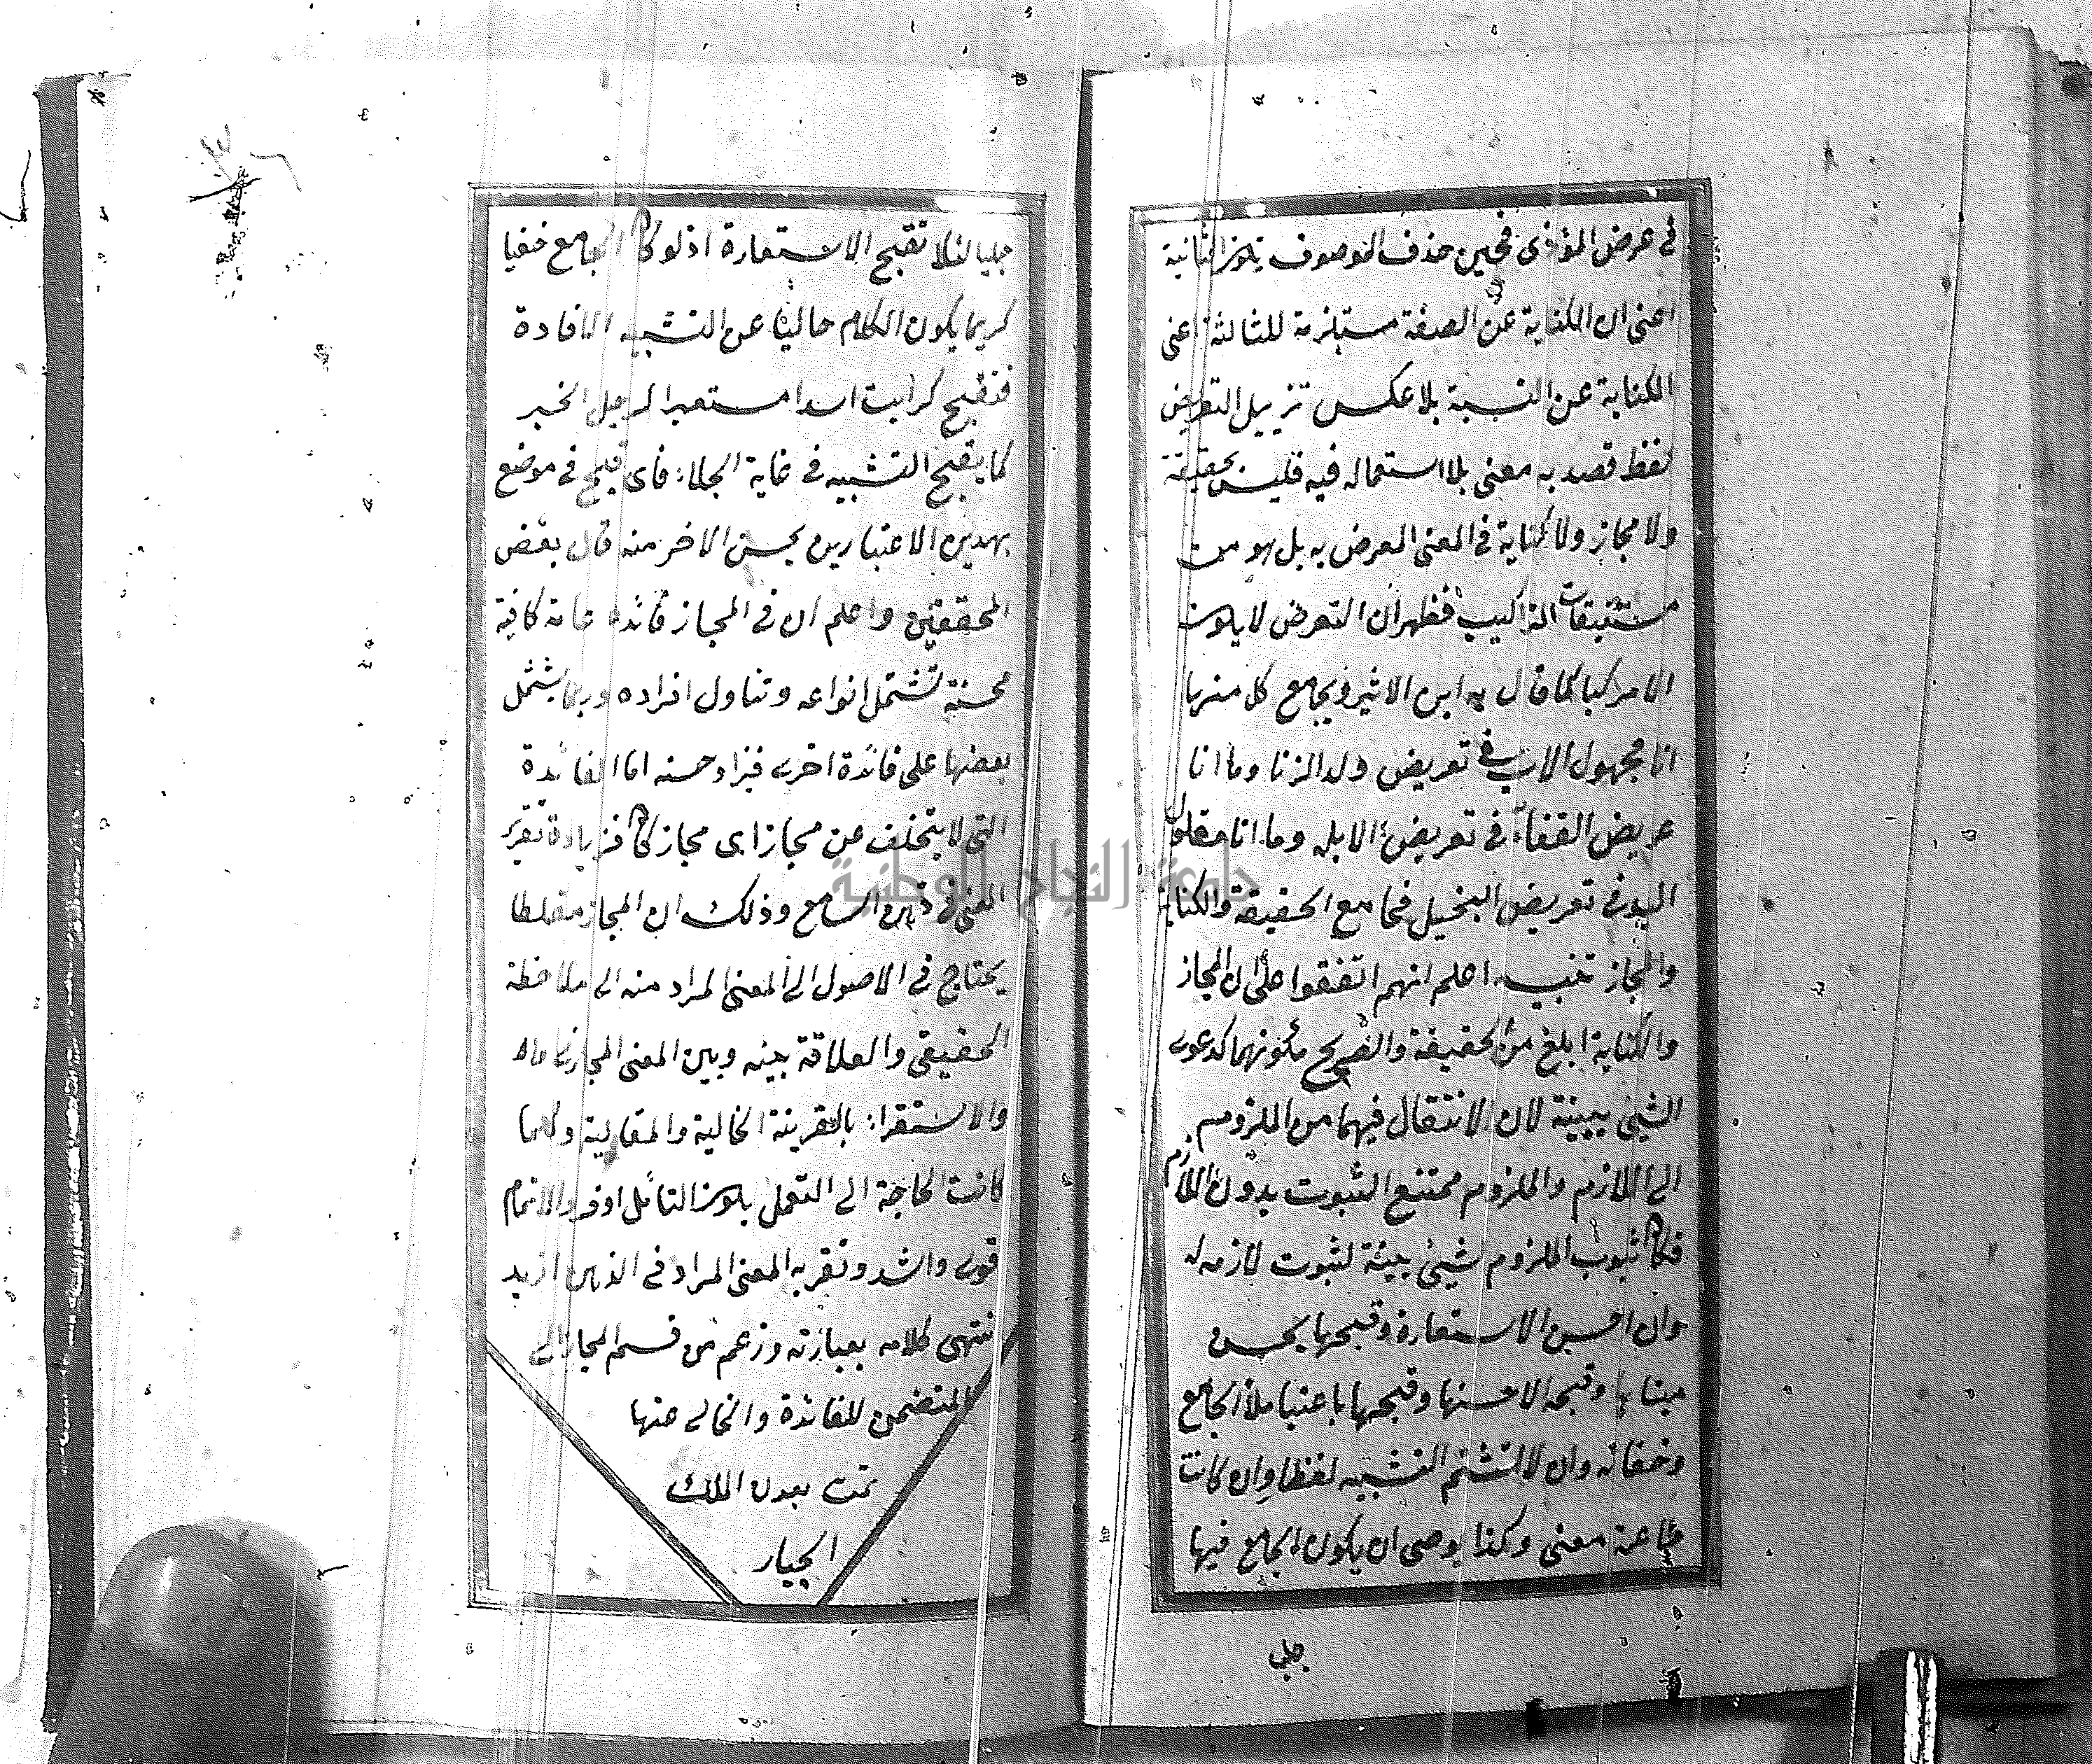 في عرض المؤذى فحين حذف الموصوف يلون الثانية
اعنى ان الكناية عن الصفة مستلزمة للثالثة اعنى
الكناية عن النسبة بلا عكس تزييل التعريض
لفظ قصد به معنى بلا استعماله فيه فليس بحقيقة
ولا مجاز ولا كناية في المعنى المعرض به بل هو من
مستتبعات التراكيب فظهر ان التعرض لا يكون
الا مركبا كما قال به ابن الاثير ويجامع كل منها
انا مجهول الاب في تعريض ولد الزنا وما انا
عريض القفاء في تعريض الابله وما انا مغلول
اليد في تعريض البخيل فجامع الحقيقة والكناية
والمجاز تنبيه اعلم انهم اتفقوا على ان المجاز
والكناية ابلغ من الحقيقة والتصريح لكونهما كدعوى
الشيئ ببينة لان الانتقال فيهما من الملزوم
الى اللازم والملزوم ممتنع الثبوت بدون اللازم
فكان ثبوت الملزوم لشيئ بينة لثبوت لازمه له
وان احسن الاستعارة وقبحها بحسن
وقبحه الا حسنها وقبحها الجامع
وخفائه وان لا التشم التشبيه لفظا وان كانت
معنى وكذا يوصى ان يكون الجامع فيها
جلي
جليا لئلا تقبح الاستعارة اذ لو كان الجامع خفيا
كريما يكون الكلام خاليا عن التشبيه الافادة
فتقبح كرايت اسدا مستعيرا لرجل الخبر
كما يقبح التشبيه في غاية الجلاء فاى قبيح في موضع
بهذين الاعتبارين يحسن الاخر منه قال بعض
المحققين واعلم ان في المجاز فائدة عامة كافية
محسنة تشتمل انواعه وتناول افراده وربما يشتمل
بعضها على فائدة اخرى فيزاد حسنه اما الفائدة
التى لا يتخلف عن مجاز اى مجاز كان فزيادة تقرير
المعنى في ذهن السامع وذلك ان المجاز مغلطا
يحتاج في الاصول الى المعنى المراد منه الى ملاحظة
الحقيقى والعلاقة بينه وبين المعنى المجازى
والاستقراء بالقرينة الحالية والمقالية وكلما
كانت الحاجة الى التعمل يكون التائل اوفر والاتمام
قوى واشد وتقربه المعنى المراد في الذهن ازيد
انتهى كلامه بعبارته وزعم من قسم المجاز الى
المتضمن للفائدة والخالى عنها
تمت بعون الملك
الجبار
جامعة النجاح الوطنية